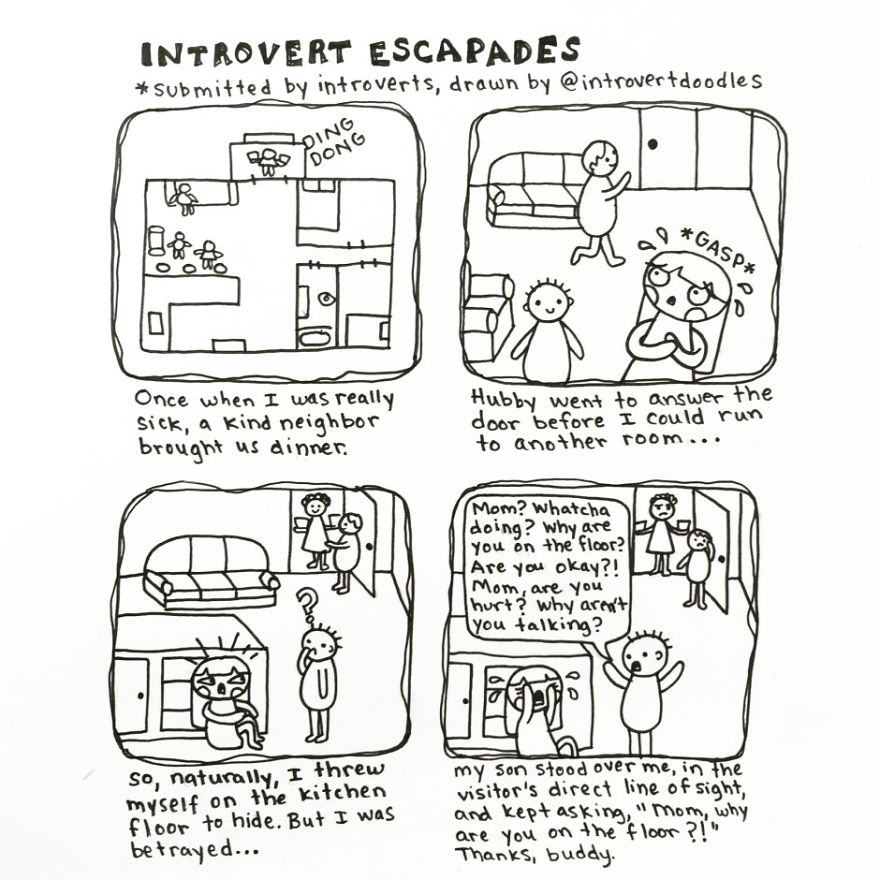 INTROVERT ESCAPADES
*submitted by introverts, drawn by @introvertdoodles
DING
DONG
Once when I was really
sick, a kind neighbor
brought us dinner.
*GASP*
Hubby went to answer the
door before I could run
to another room...
?
so, naturally, I threw
myself on the kitchen
floor to hide. But I was
betrayed...
Mom? Whatcha
doing? Why are
you on the floor?
Are you okay?!
Mom, are you
hurt? Why aren't
you talking?
my son stood over me, in the
visitor's direct line of sight,
and kept asking, "Mom, why
are you on the floor?!"
Thanks, buddy.